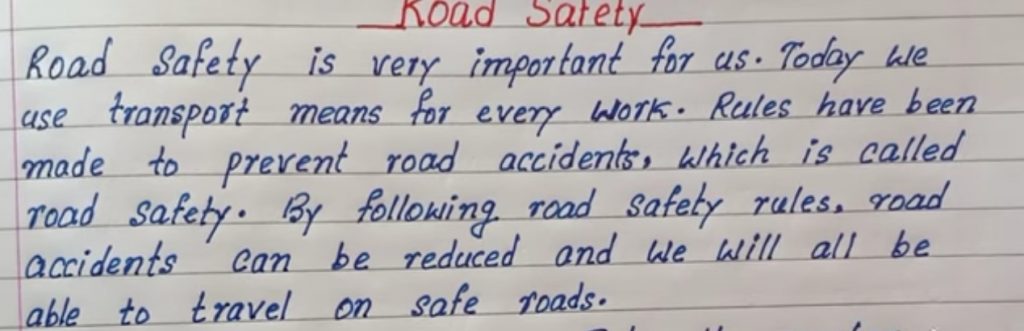 Road Safety
Road Safety is very important for us. Today we
use transport means for every work. Rules have been
made to prevent road accidents, which is called
road safety. By following road safety rules, road
accidents can be reduced and we will all be
able to travel on safe roads.